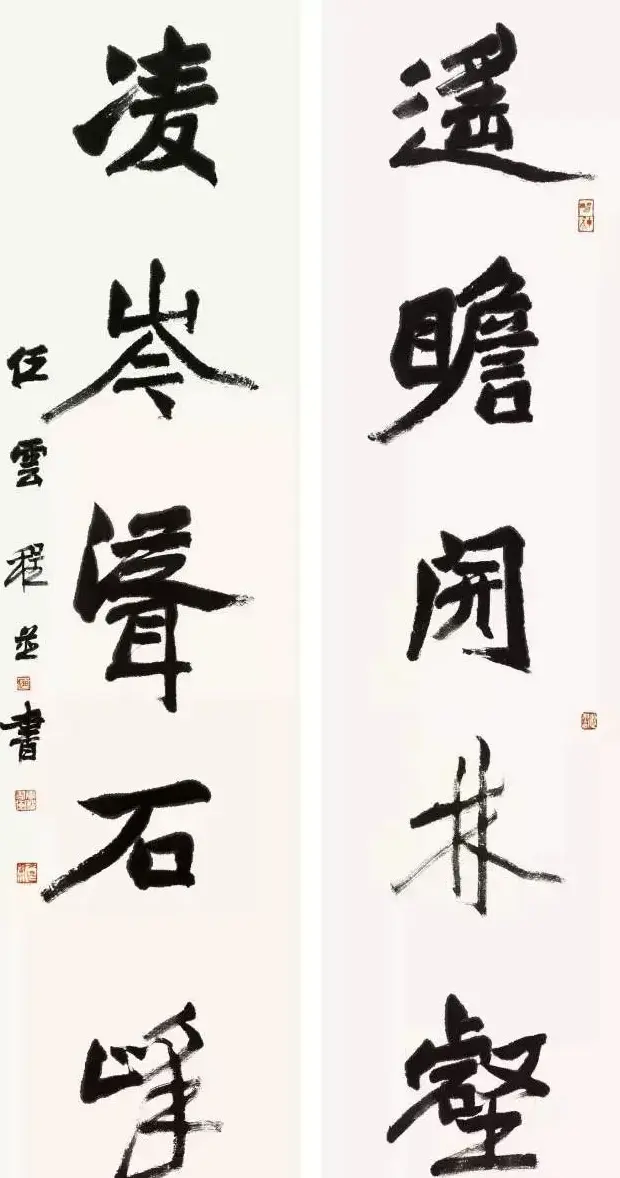 遙瞻開林壑
凌岑聳石峰
任雲程並書